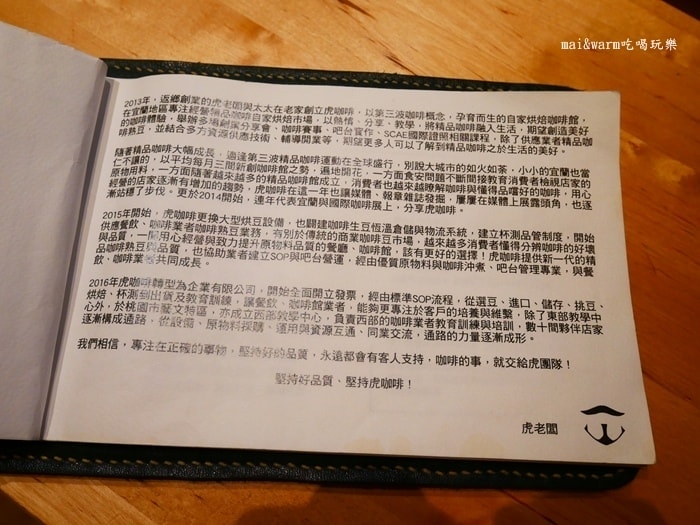 mai&warm吃喝玩樂
2013年，返鄉創業的虎老闆與太太在老家創立虎咖啡，以第三波咖啡概念，孕育而生的自家烘焙咖啡館，
在宜蘭地區專注經營精品咖啡自家烘焙市場，以熱情、分享、教學，將精品咖啡融入生活，期望創造美好
的咖啡體驗，舉辦多場創業分享會、咖啡賽事、吧台實作、SCAE國際證照相關課程，除了供應業者精品咖
啡熟豆，並結合多方資源供應技術、輔導開業等，期望更多人可以了解到精品咖啡之於生活的美好。
隨著精品咖啡大幅成長，適逢第三波精品咖啡運動在全球盛行，別說大城市的如火如荼，小小的宜蘭也當
仁不讓的，以平均每月三間新創咖啡館之勢，遍地開花，一方面食安問題不斷間接教育消費者檢視店家的
原物用料，一方面隨著越來越多的精品咖啡館成立，消費者也越來越瞭解咖啡與懂得品嚐好的咖啡，用心
經營的店家逐漸有增加的趨勢，虎咖啡在這一年也讓媒體、報章雜誌發掘，屢屢在媒體上展露頭角，也逐
漸站穩了步伐。更於2014開始，連年代表宜蘭與國際咖啡展上，分享虎咖啡。
2015年開始，虎咖啡更換大型烘豆設備，也闢建咖啡生豆恆溫倉儲與物流系統，建立杯測品管制度，開始
供應餐飲、咖啡業者咖啡熟豆業務，有別於傳統的商業咖啡豆市場，越來越多消費者懂得分辨咖啡的好壞
與品質，一間用心經營與致力提升原物料品質的餐廳、咖啡館，該有更好的選擇！虎咖啡提供新一代的精
品咖啡熟豆與品質，也協助業者建立SOP與吧台營運，經由優質原物料與咖啡沖煮、吧台管理專業，與餐
飲、咖啡業者共同成長。
2016年虎咖啡轉型為企業有限公司，開始全面開立發票，經由標準SOP流程，從選豆、進口、儲存、挑豆、
烘焙、杯測到出貨及教育訓練，讓餐飲、咖啡館業者，能夠更專注於客戶的培養與維繫，除了東部教學中
心外，於桃園市藝文特區，亦成立西部教學中心，負責西部的咖啡業者教育訓練與培訓，數十間夥伴店家
逐漸構成通路，從設備、原物料採購、運用與資源互通、同業交流，通路的力量逐漸成形。
我們相信，專注在正確的事物，堅持好的品質，永遠都會有客人支持，咖啡的事，就交給虎團隊！
堅持好品質、堅持虎咖啡！
虎老闆